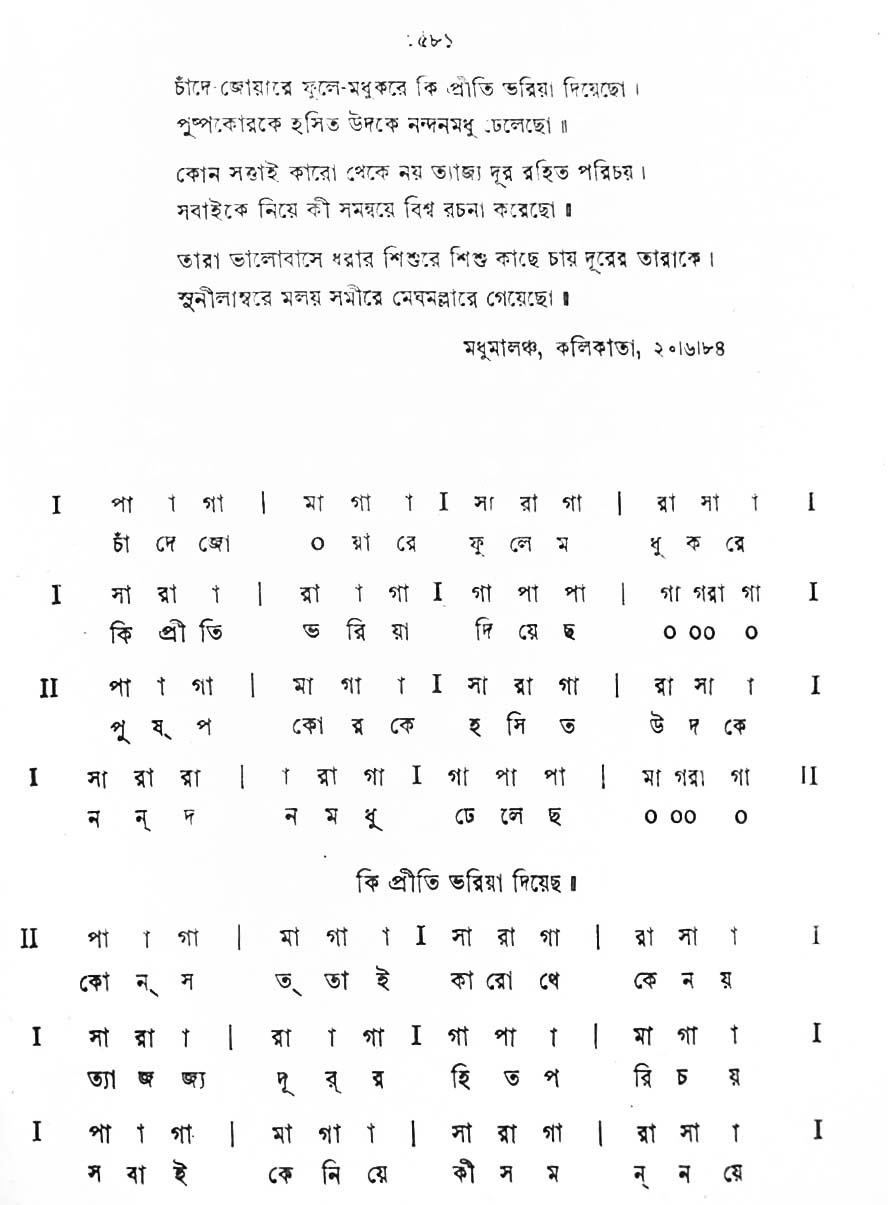 ৫৮১
চাঁদে জোয়ারে ফুলে-মধুকরে কি প্রীতি ভরিয়া দিয়েছো ।
পুষ্পকোরকে হসিত উদকে নন্দনমধু ঢেলেছো ॥
কোন সত্তাই কারো থেকে নয় ত্যাজ্য দূর রহিত পরিচয় ।
সবাইকে নিয়ে কী সমন্বয়ে বিশ্ব রচনা করেছো ॥
তারা ভালোবাসে ধরার শিশুরে শিশু কাছে চায় দূরের তারাকে ।
সুনীলাম্বরে মলয় সমীরে মেঘমল্লারে গেয়েছো ॥
মধুমালঞ্চ, কলিকাতা, ২০।৬।৮৪
I পা া গা | মা গা া I সা রা গা | রা সা া I
চাঁ দে জো ০ য়া রে ফু লে ম ধু ক রে
I সা রা া | রা া গা I গা পা পা | গা গরা গা I
কি প্রী তি ভ রি য়া দি য়ে ছ ০ ০০ ০
II পা া গা | মা গা া I সা রা গা | রা সা া I
পু ষ্ প কো র কে হ সি ত উ দ কে
I সা রা রা | া রা গা I গা পা পা | মা গরা গা II
ন ন্ দ ন ম ধু ঢে লে ছ ০ ০০ ০
কি প্রীতি ভরিয়া দিয়েছ ॥
II পা া গা | মা গা া I সা রা গা | রা সা া I
কো ন্ স ত্ তা ই কা রো থে কে ন য়
I সা রা া | রা া গা I গা পা া | মা গা া I
ত্যা জ জ্য দূ র্ র হি ত প রি চ য়
I পা া গা | মা গা া | সা রা গা | রা সা া I
স বা ই কে নি য়ে কী স ম ন্ ন য়ে